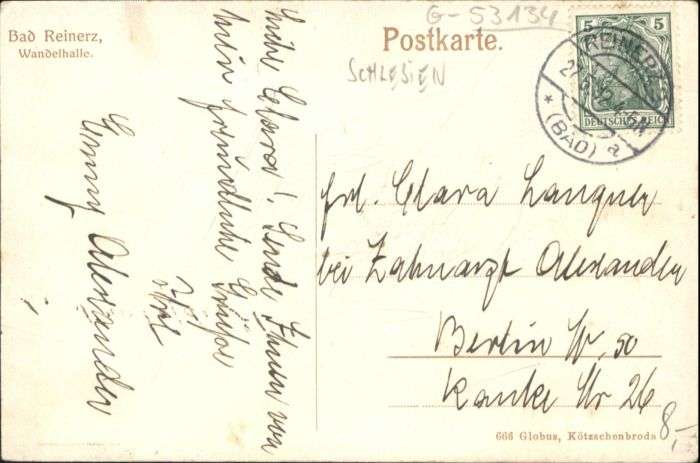 Bad Reinerz,
Wandelhalle.
Postkarte.
G-53134
SCHLESIEN
5 5
DEUTSCHES REICH
REINERZ
(BAD)
a
Clara! Sende Ihnen von
hier freundliche Grüße
Ihre
Emmy Alexander
Frl. Clara Langner
bei Zahnarzt Alexander
Berlin W. 50
Ranke Str 26
8,-
666 Globus, Kötzschenbroda